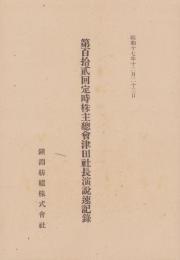 昭和十七年十二月二十三日
第百拾貳回定時株主總會津田社長演說速記錄
鐘淵紡績株式會社